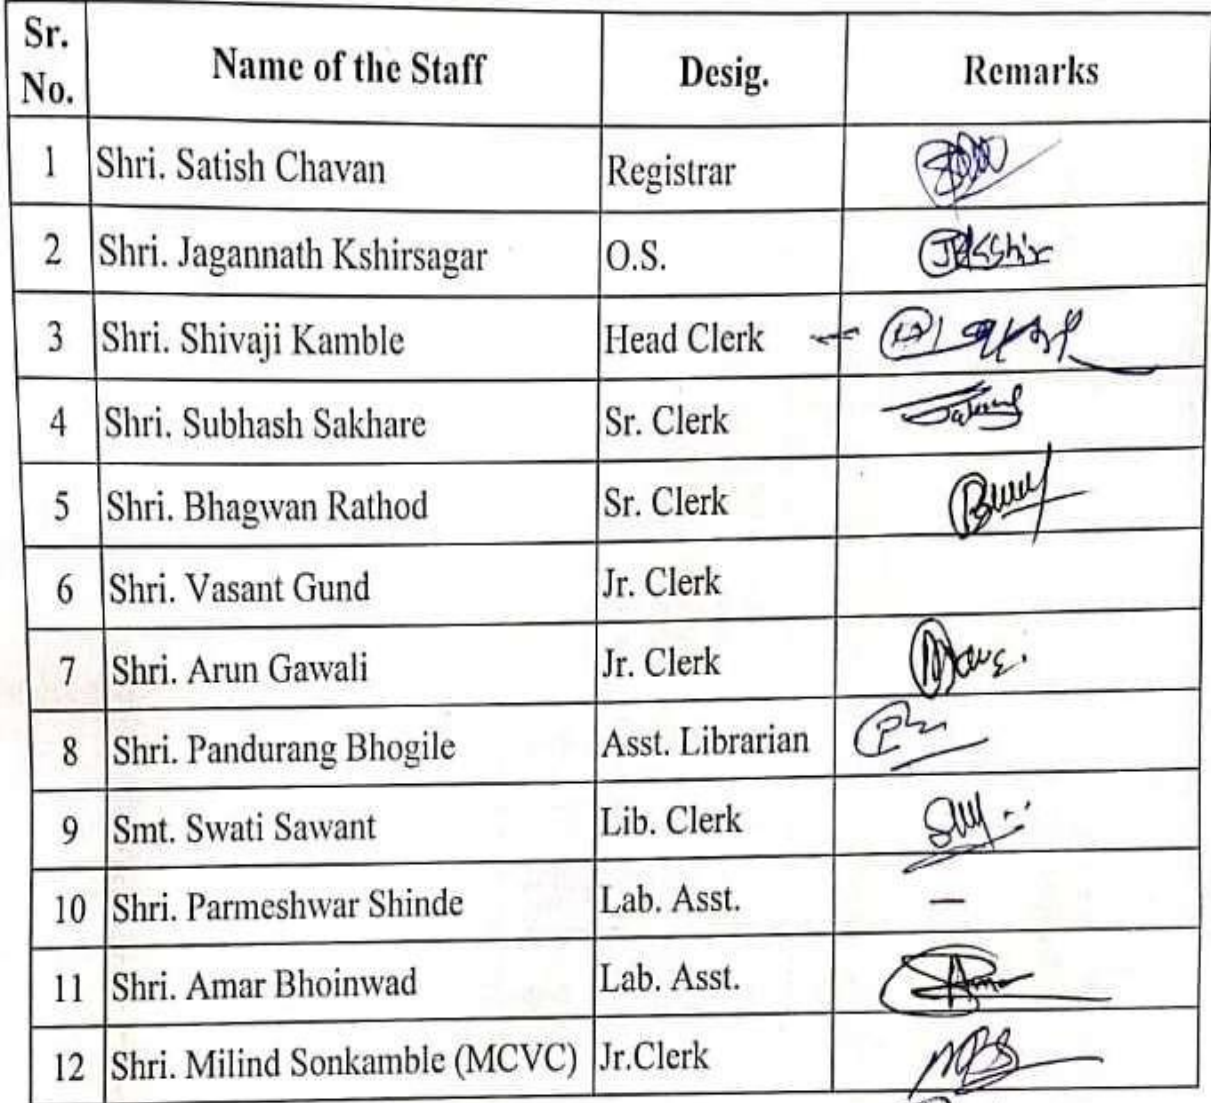 Sr. No. Name of the Staff Desig. Remarks
1 Shri. Satish Chavan Registrar
2 Shri. Jagannath Kshirsagar O.S. JKKshir
3 Shri. Shivaji Kamble Head Clerk
4 Shri. Subhash Sakhare Sr. Clerk
5 Shri. Bhagwan Rathod Sr. Clerk
6 Shri. Vasant Gund Jr. Clerk
7 Shri. Arun Gawali Jr. Clerk
8 Shri. Pandurang Bhogile Asst. Librarian
9 Smt. Swati Sawant Lib. Clerk
10 Shri. Parmeshwar Shinde Lab. Asst. —
11 Shri. Amar Bhoinwad Lab. Asst.
12 Shri. Milind Sonkamble (MCVC) Jr.Clerk